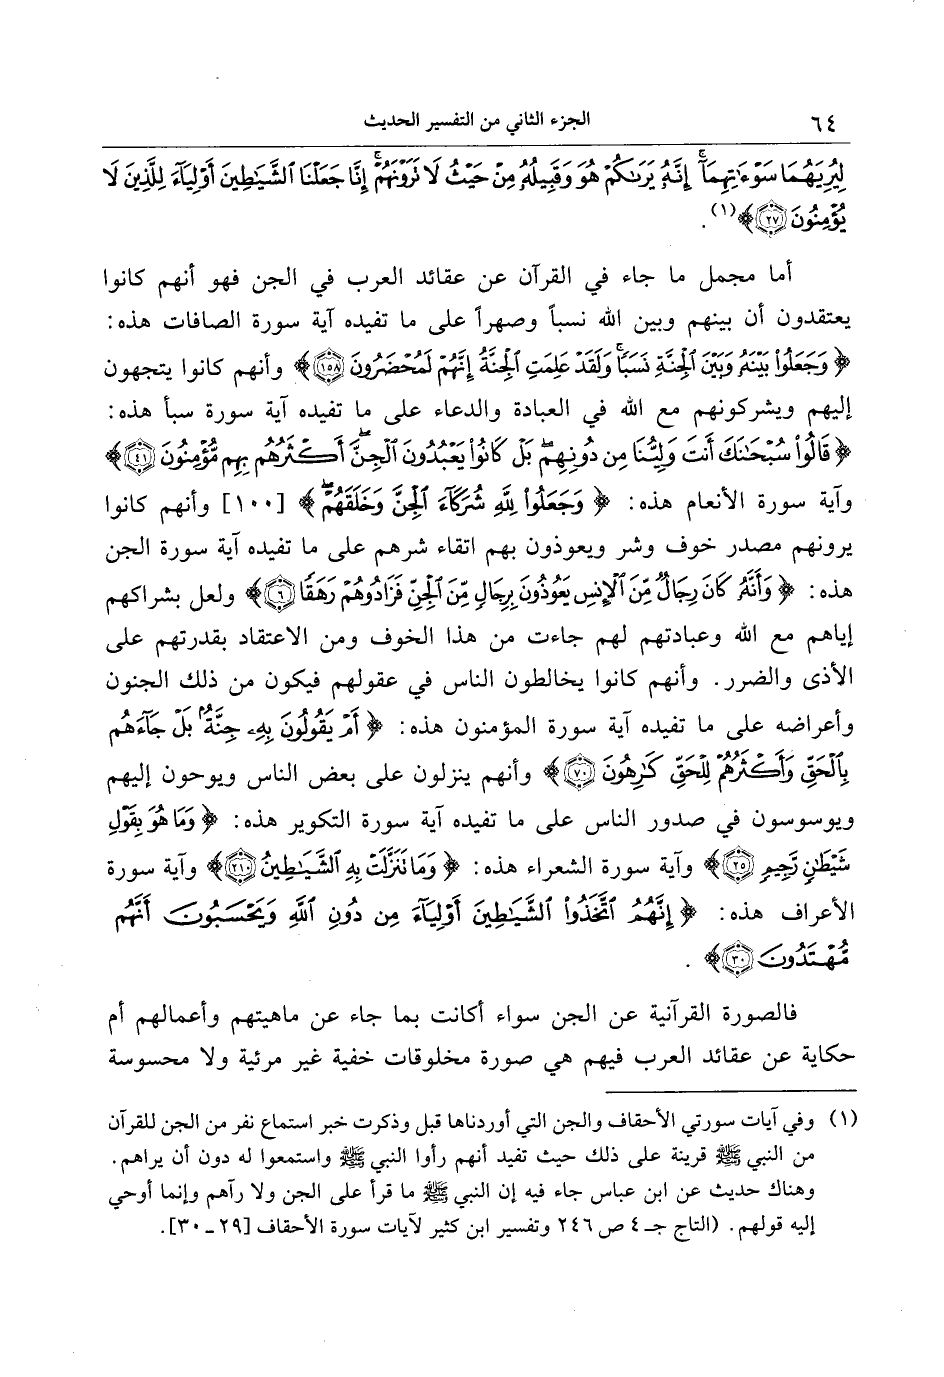 ٦٤
الجزء الثاني من التفسير الحديث
لِيُرِيَهُمَا سَوْءَٰتِهِمَآ ۗ إِنَّهُۥ يَرَىٰكُمْ هُوَ وَقَبِيلُهُۥ مِنْ حَيْثُ لَا تَرَوْنَهُمْ ۗ إِنَّا جَعَلْنَا ٱلشَّيَٰطِينَ أَوْلِيَآءَ لِلَّذِينَ لَا
يُؤْمِنُونَ ٢٧﴾ (١).
أما مجمل ما جاء في القرآن عن عقائد العرب في الجن فهو أنهم كانوا
يعتقدون أن بينهم وبين الله نسباً وصهراً على ما تفيده آية سورة الصافات هذه:
﴿وَجَعَلُوا۟ بَيْنَهُۥ وَبَيْنَ ٱلْجِنَّةِ نَسَبًا ۚ وَلَقَدْ عَلِمَتِ ٱلْجِنَّةُ إِنَّهُمْ لَمُحْضَرُونَ ١٥٨﴾ وأنهم كانوا يتجهون
إليهم ويشركونهم مع الله في العبادة والدعاء على ما تفيده آية سورة سبأ هذه:
﴿قَالُوا۟ سُبْحَٰنَكَ أَنتَ وَلِيُّنَا مِن دُونِهِم ۖ بَلْ كَانُوا۟ يَعْبُدُونَ ٱلْجِنَّ ۖ أَكْثَرُهُم بِهِم مُّؤْمِنُونَ ٤١﴾
وآية سورة الأنعام هذه: ﴿وَجَعَلُوا۟ لِلَّهِ شُرَكَآءَ ٱلْجِنَّ وَخَلَقَهُمْ ۖ﴾ [١٠٠] وأنهم كانوا
يرونهم مصدر خوف وشر ويعوذون بهم اتقاء شرهم على ما تفيده آية سورة الجن
هذه: ﴿وَأَنَّهُۥ كَانَ رِجَالٌ مِّنَ ٱلْإِنسِ يَعُوذُونَ بِرِجَالٍ مِّنَ ٱلْجِنِّ فَزَادُوهُمْ رَهَقًا ٦﴾ ولعل بشراكهم
إياهم مع الله وعبادتهم لهم جاءت من هذا الخوف ومن الاعتقاد بقدرتهم على
الأذى والضرر. وأنهم كانوا يخالطون الناس في عقولهم فيكون من ذلك الجنون
وأعراضه على ما تفيده آية سورة المؤمنون هذه: ﴿أَمْ يَقُولُونَ بِهِۦ جِنَّةٌۢ ۚ بَلْ جَآءَهُم
بِٱلْحَقِّ وَأَكْثَرُهُمْ لِلْحَقِّ كَٰرِهُونَ ٧٠﴾ وأنهم ينزلون على بعض الناس ويوحون إليهم
ويوسوسون في صدور الناس على ما تفيده آية سورة التكوير هذه: ﴿وَمَا هُوَ بِقَوْلِ
شَيْطَٰنٍ رَّجِيمٍ ٢٥﴾ وآية سورة الشعراء هذه: ﴿وَمَا تَنَزَّلَتْ بِهِ ٱلشَّيَٰطِينُ ٢١٠﴾ وآية سورة
الأعراف هذه: ﴿إِنَّهُمُ ٱتَّخَذُوا۟ ٱلشَّيَٰطِينَ أَوْلِيَآءَ مِن دُونِ ٱللَّهِ وَيَحْسَبُونَ أَنَّهُم
مُّهْتَدُونَ ٣٠﴾.
فالصورة القرآنية عن الجن سواء أكانت بما جاء عن ماهيتهم وأعمالهم أم
حكاية عن عقائد العرب فيهم هي صورة مخلوقات خفية غير مرئية ولا محسوسة
(١) وفي آيات سورتي الأحقاف والجن التي أوردناها قبل وذكرت خبر استماع نفر من الجن للقرآن
من النبي ﷺ قرينة على ذلك حيث تفيد أنهم رأوا النبي ﷺ واستمعوا له دون أن يراهم.
وهناك حديث عن ابن عباس جاء فيه إن النبي ﷺ ما قرأ على الجن ولا رآهم وإنما أوحي
إليه قولهم. (التاج جـ ٤ ص ٢٤٦ وتفسير ابن كثير لآيات سورة الأحقاف [٢٩ ـ ٣٠].